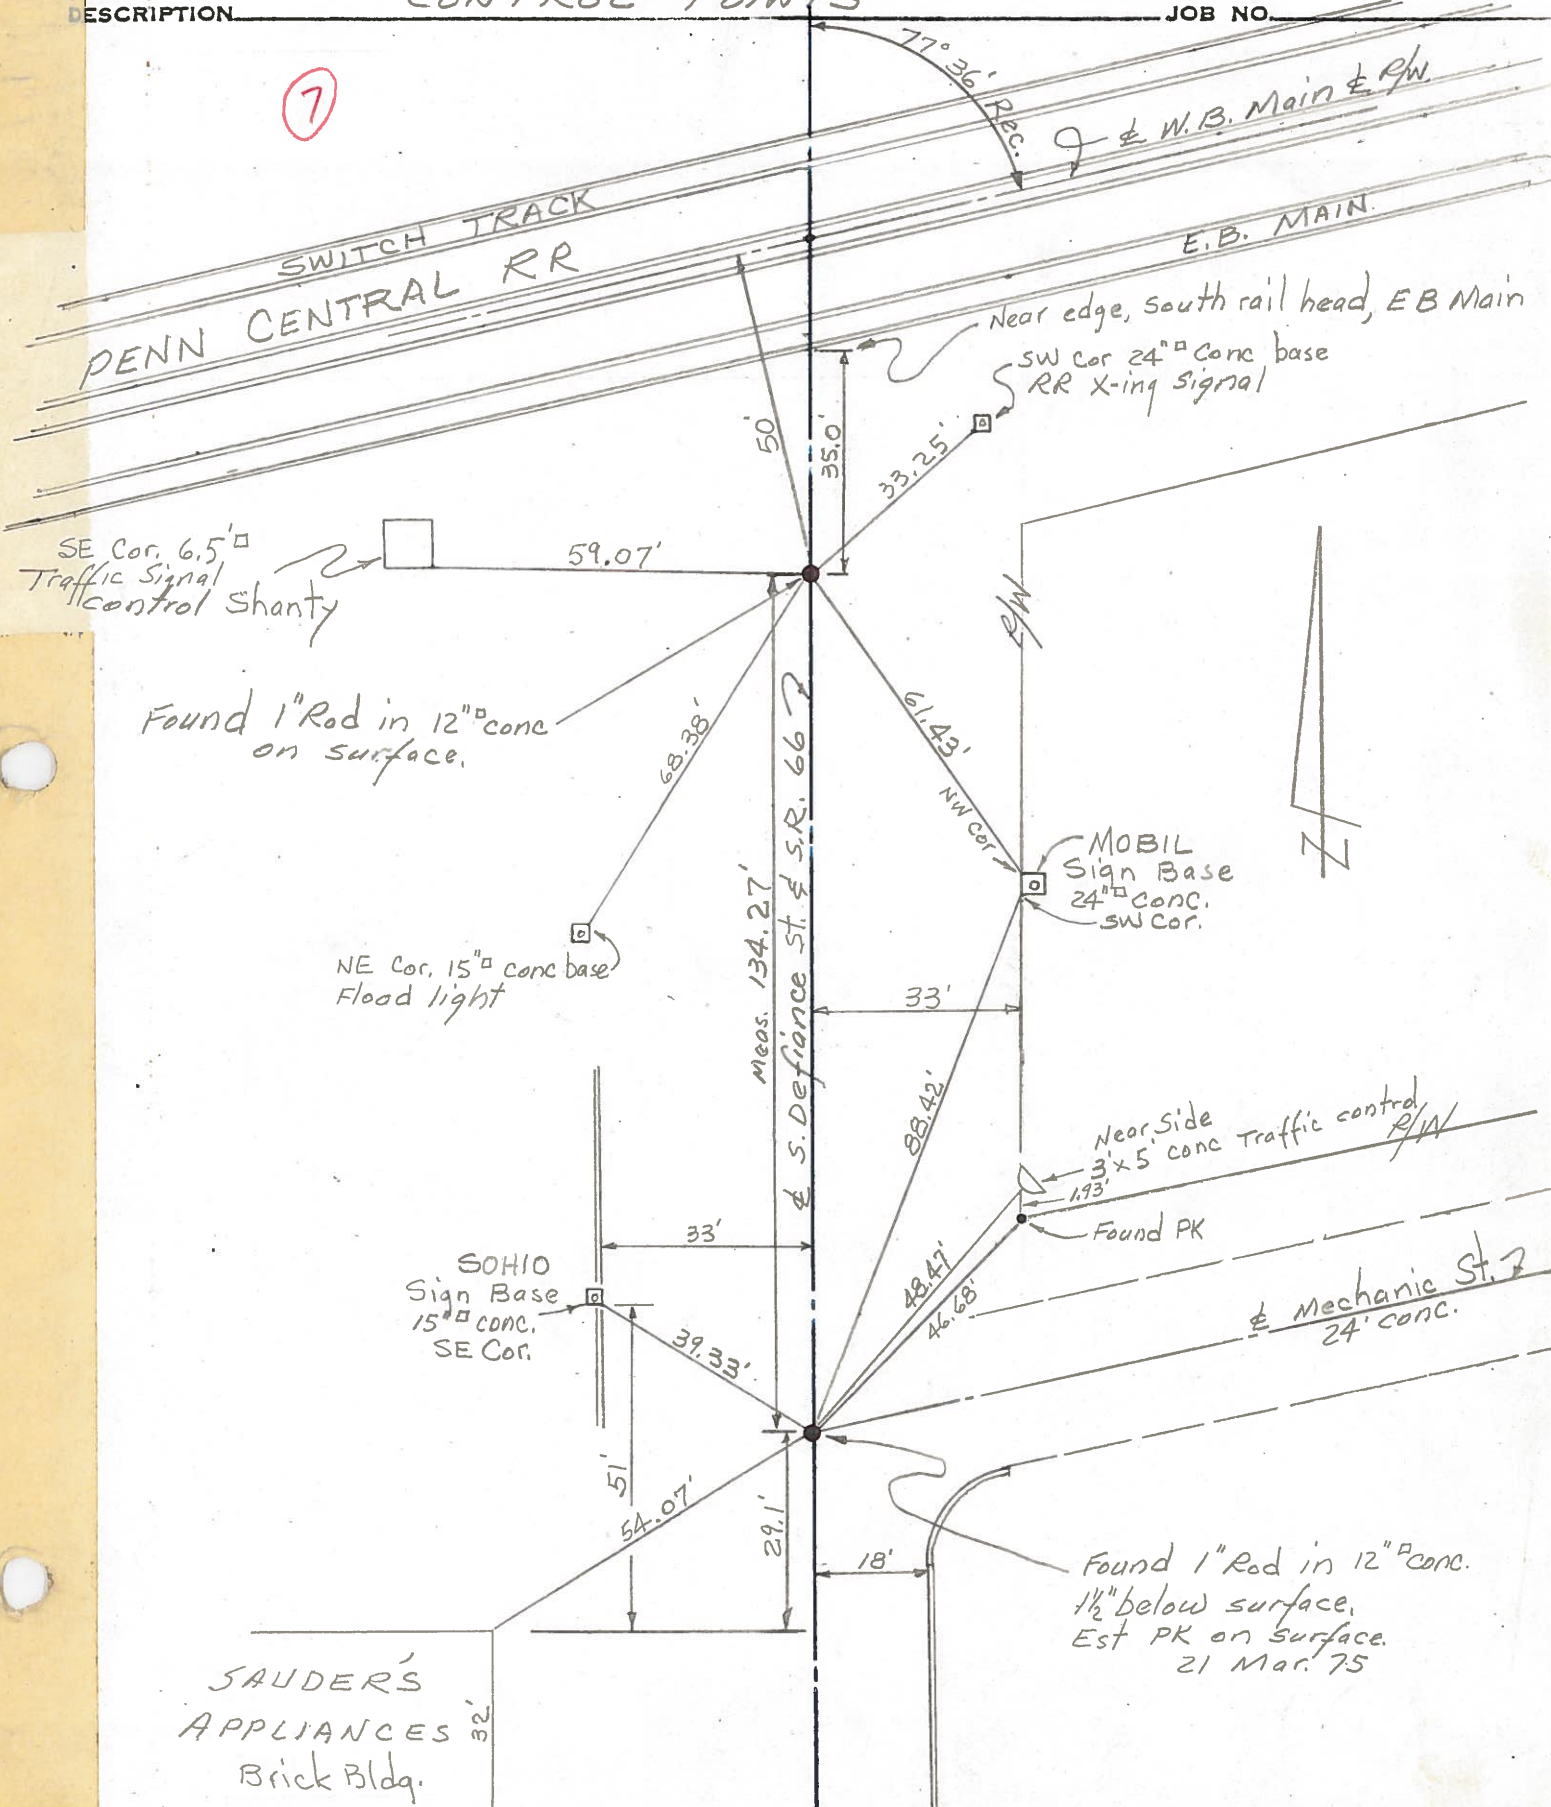 DESCRIPTION CONTROL POINTS JOB NO.
7
77° 36' Rec.
℄ W.B. Main & R/W
SWITCH TRACK
PENN CENTRAL RR
E.B. MAIN
Near edge, south rail head, EB Main
SW Cor 24"□ Conc base
RR X-ing Signal
50'
35.0'
33.25'
SE Cor. 6.5'□
Traffic Signal
Control Shanty
59.07'
R/W
Found 1" Rod in 12"□ conc
on surface.
68.38'
61.43'
NW Cor
MOBIL
Sign Base
24"□ conc.
SW Cor.
N
NE Cor. 15"□ conc base
Flood light
Meas. 134.27'
℄ S. Defiance St. & S.R. 66
33'
88.42'
Near Side
3' x 5' conc Traffic control
R/W
1.93'
Found PK
33'
SOHIO
Sign Base
15"□ conc.
SE Cor.
48.47'
46.68'
℄ Mechanic St.
24' conc.
39.33'
51'
54.07'
29.1'
18'
Found 1" Rod in 12"□ conc.
1½" below surface.
Est PK on surface.
21 Mar. '75
SAUDER'S
APPLIANCES
Brick Bldg.
32'